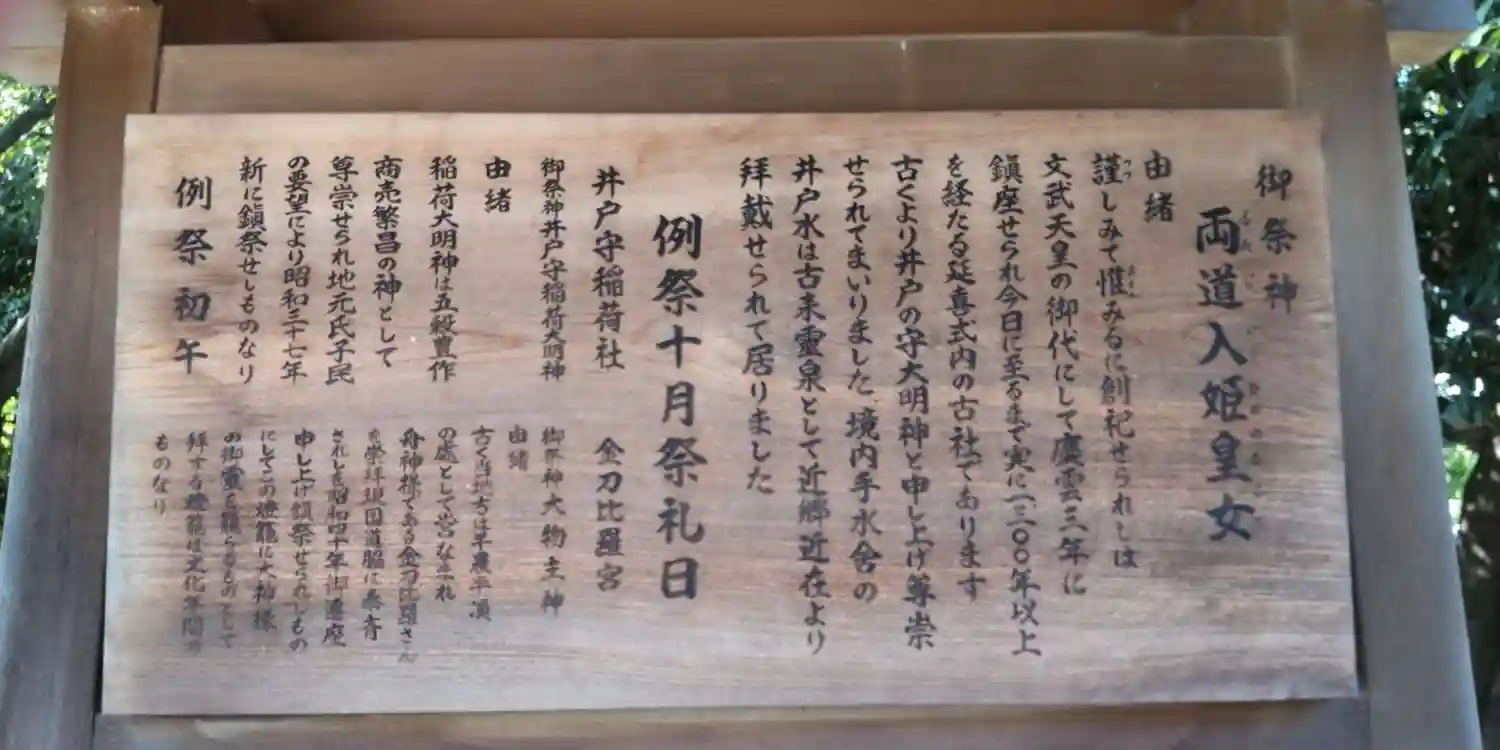 御祭神
両道入姫皇女
由緒
謹しみて惟みるに創祀せられしは
文武天皇の御代にして慶雲三年に
鎮座せられ今日に至るまで実に一三〇〇年以上
を経たる延喜式内の古社であります
古くより井戸の守大明神と申し上げ尊崇
せられてまいりました、境内手水舎の
井戸水は古来霊泉として近郷近在より
拝戴せられて居りました
例祭十月祭礼日
井戸守稲荷社
御祭神井戸守稲荷大明神
由緒
稲荷大明神は五穀豊作
商売繁昌の神として
尊崇せられ地元氏子民
の要望により昭和三十七年
新に鎮祭せしものなり
例祭初午
金刀比羅宮
御祭神大物主神
由緒
古く当地方は半農半漁
の處として営なまれ
舟神様である金刀比羅さん
を崇拝現囯道脇に奉斎
されしを昭和四十年御遷座
申し上げ鎮祭せられしもの
にしてこの燈籠に大神様
の御霊を籠らるものとして
拝する燈籠は文化年間の
ものなり